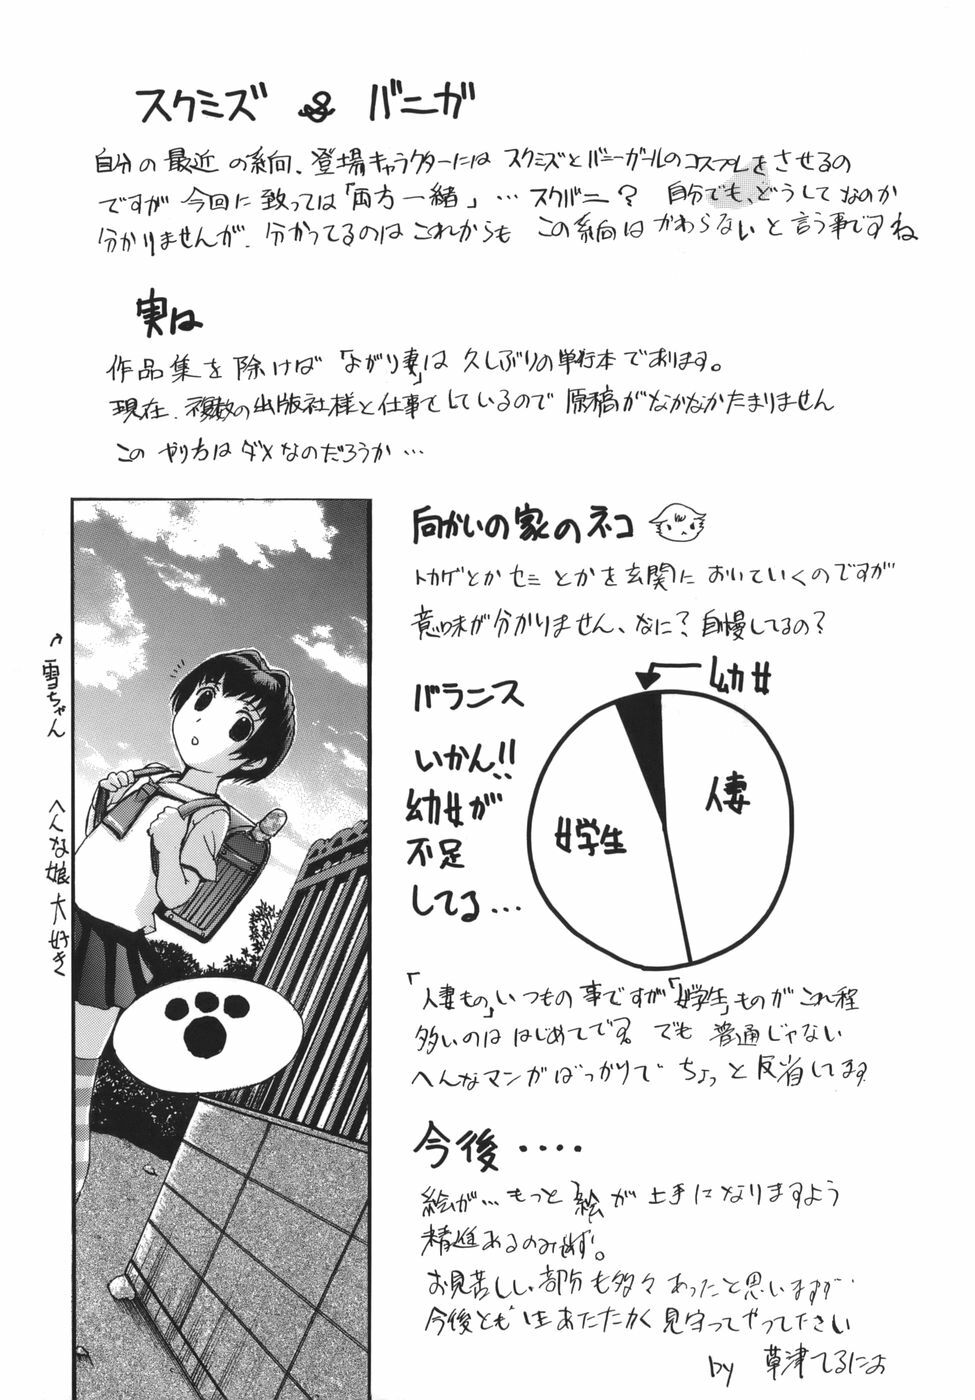 スクミズ & バニガ
自分の最近の系向、登場キャラクターにはスクミズとバニーガールのコスプレをさせるの
ですが今回に致っては「両方一緒」…スクバニ？ 自分でも、どうしてなのか
分かりませんが、分かってるのはこれからも この系向はかわらないと言う事ですね
実は
作品集を除けば「ながり妻」は久しぶりの単行本であります。
現在、複数の出版社様と仕事をしているので原稿がなかなかたまりません
このやり方はダメなのだろうか…
向かいの家のネコ
トカゲとかセミとかを玄関においていくのですが
意味が分かりません、なに？自慢してるの？
↑雪ちゃん
へんな娘大好き
バランス
いかん!!
幼女が
不足
してる…
幼女
人妻
女学生
「人妻もの」いつもの事ですが「女学生」ものがこれ程
多いのははじめてです。でも普通じゃない
へんなマンガばっかりでちょっと反省してます
今後‥‥
絵が…もっと絵が上手になりますよう
精進あるのみ
お見苦しい部分も多々あったと思いますが
今後ともあたたかく見守ってやって下さい
by 草津てるにょ